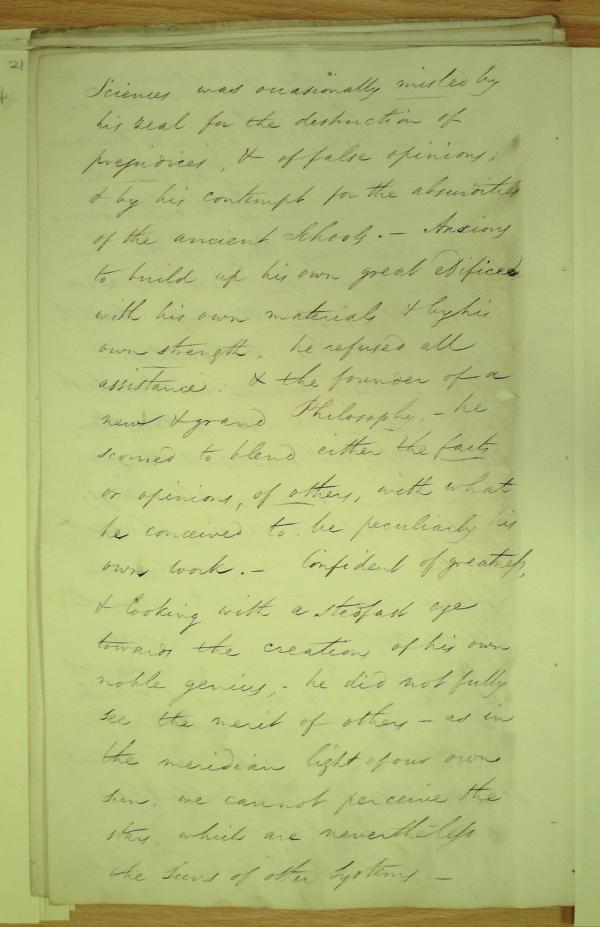 21
Sciences was occasionally misled by
his zeal for the destruction of
prejudices, & of false opinions;
& by his contempt for the absurdities
of the ancient Schools. – Anxious
to build up his own great edifice
with his own materials & by his
own strength, he refused all
assistance: & the founder of a
new & grand Philosophy, – he
scorned to blend either the facts
or opinions, of others, with what
he conceived to be peculiarly his
own work. – Confident of greatness,
& looking with a stedfast eye
towards the creations of his own
noble genius, – he did not fully
see the merit of others – as in
the meridian light of our own
sun, we cannot perceive the
stars, which are nevertheless
the Suns of other Systems. –